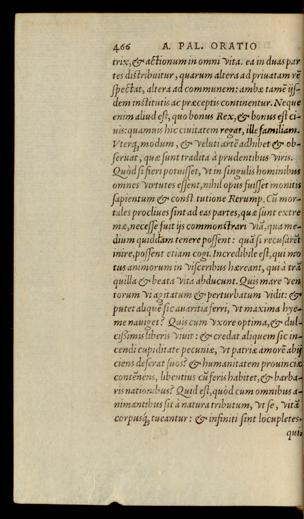 466 A. PAL. ORATIO
trix, & actionum in omni vita. ea in duas par
tes distribuitur, quarum altera ad privatam rē
spectat, altera ad communem: ambæ tamē iis-
dem institutis ac præceptis continentur. Neque
enim aliud est, quo bonus Rex, & bonus est ci-
uis: quamuis hic ciuitatem regat, ille familiam.
Vterq; modum, & veluti artē adhibet & ob-
seruat, quæ sunt tradita à prudentibus viris.
Quòd si fieri potuisset, vt in singulis hominibus
omnes virtutes essent, nihil opus fuisset monitis
sapientum & constitutione Rerump. Cū mor-
tales procliues sint ad eas partes, quæ sunt extre
mæ, necesse fuit iis commonstrari viā, qua me-
dium quiddam tenere possent: quā si recusarēt
inire, possent etiam cogi. Incredibile est, qui mo
tus animorum in visceribus hæreant, qui à trā
quilla & beata vita abducunt. Quis mare ven
torum vi agitatum & perturbatum vidit: &
putet aliquē sic auaritia ferri, vt maxima hye-
me nauiget? Quis cum vxore optima, & dul-
cissimis liberis viuit: & credat aliquem sic in-
cendi cupiditate pecuniæ, vt patriæ amorē abij
ciens deserat suos? & humanitatem prouinciæ
contēnens, libentius cū feris habitet, & barba-
ris nationibus? Quid est, quòd cum omnibus a-
nimantibus sit à natura tributum, vt se, vitā
corpusq; tueantur: & infiniti sint locupletes,
qui